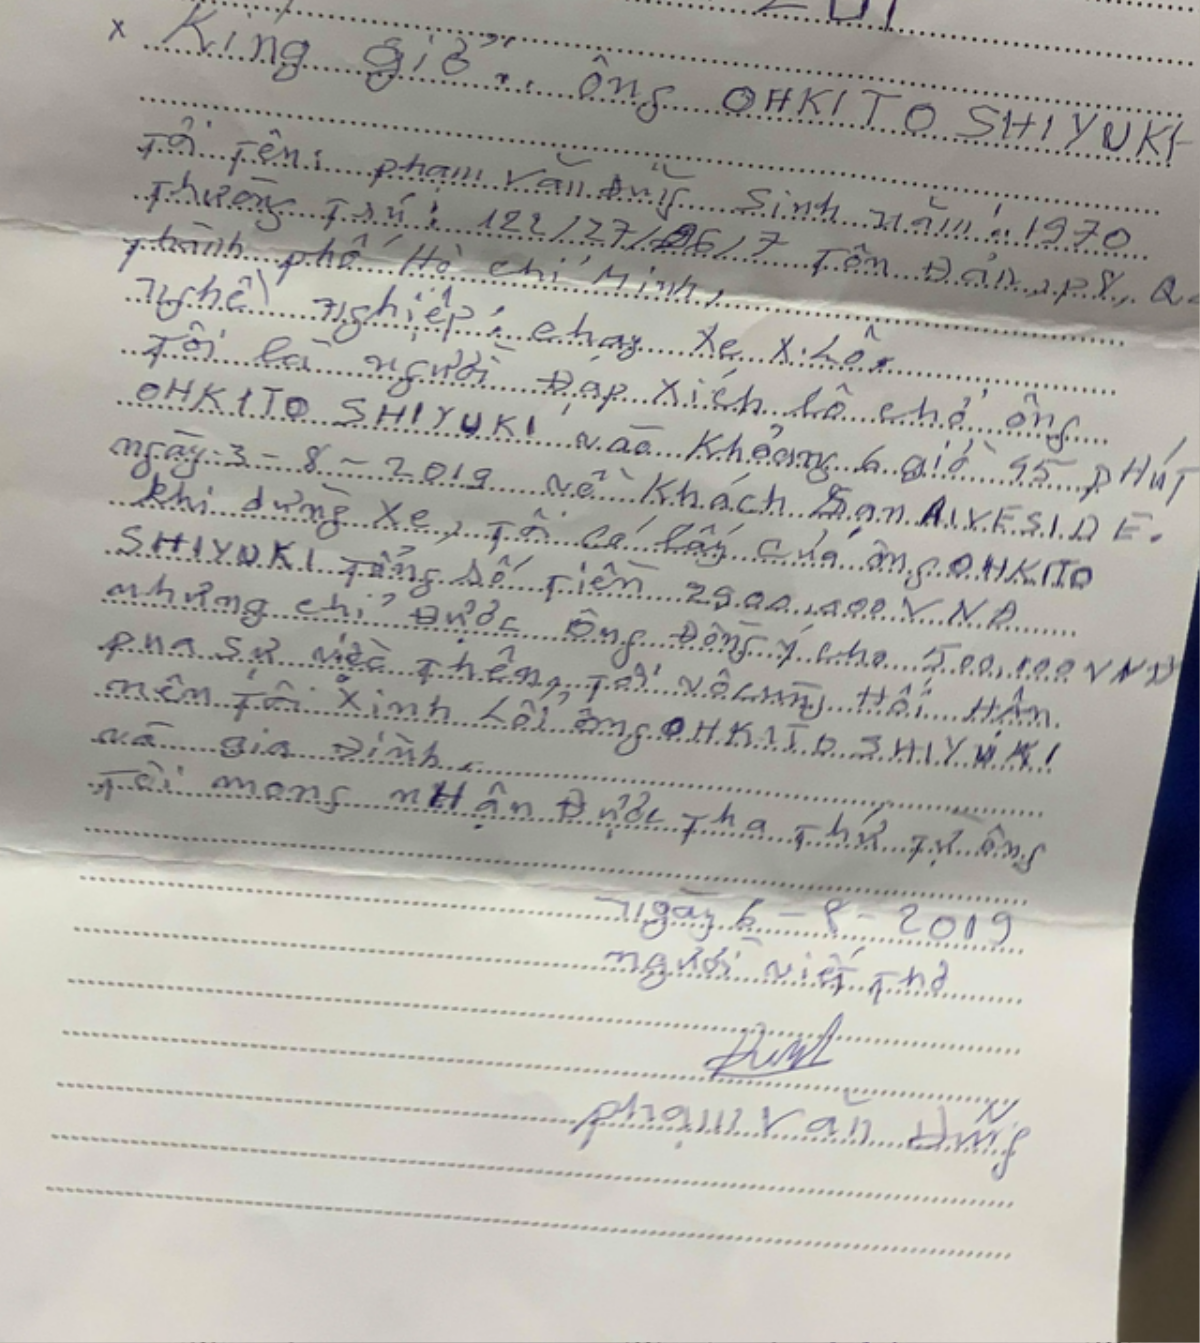 x Kíng giở.. ông OHKITO SHIYUKI
Tôi Tên: phạm Văn Dũng Sinh năm: 1970
Thường Trú: 122/27/26/7 Tôn Đản, p8, Q.
thành phố Hồ chí Minh,
nghề nghiệp: chay xe x.Lô.
Tôi là người Đạp xích lô chở ông
OHKITO SHIYUKI vào khoảng 6 giờ 45 pHÚT
ngày 3-8-2019 về khách sạn RIVESIDE.
khi dừng xe, Tôi có lấy của ông OHKITO
SHIYUKI Tổng Số Tiền 2900.000 VNĐ
nhưng chỉ Được ông Đồng ý cho 500.000 VNĐ
pua Sự việc Thên, Tôi vô cùng Hối Hận.
nên Tôi xinh Lỗi ông OHKITO SHIYUKI
và gia Đình.
Tôi mong nHận Được Tha Thứ Từ ông
ngày 6-8-2019
người viết Thơ
phạm Văn Dũng